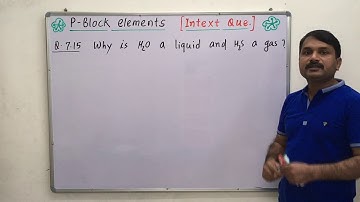 P-Block elements [Intext Que.]
Q.7.15 Why is H₂O a liquid and H₂S a gas?